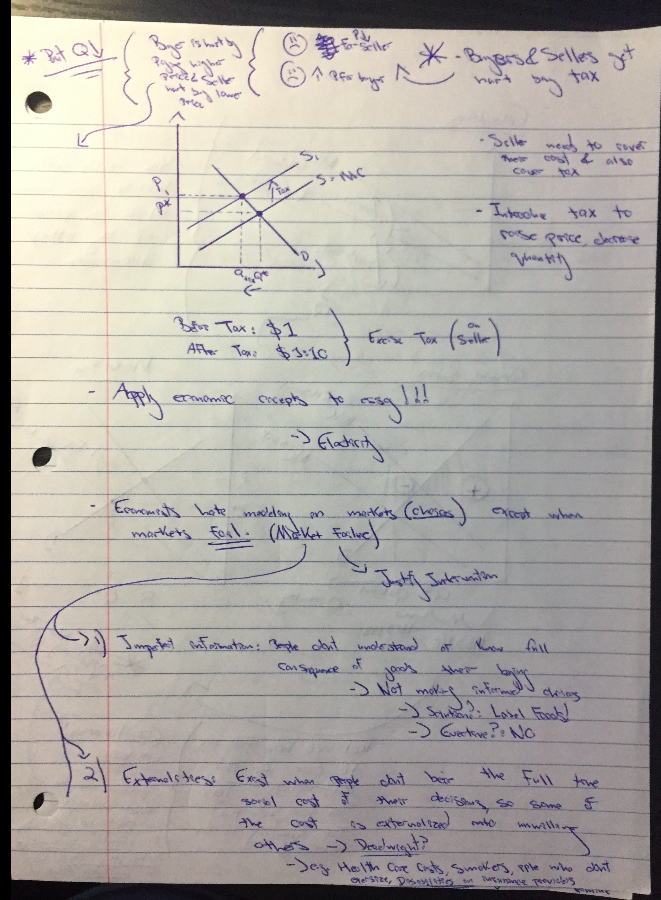 * But Q↓
Buyer is hurt by
Paying higher
Price & Seller
hurt by lower
Price
P↓
for seller
↑ P for buyer
* - Buyers & Selles get
hurt by tax
- Seller needs to cover
their cost & also
cover tax
- Introduce tax to
raise price, decrease
quantity
S₁
S=MC
↑Tax
P₁
P*
D
Q*
←
Before Tax: $1
After Tax: $1.10
Excise Tax (on Seller)
- Apply economic concepts to essay!!!
-> Elasticity
- Economists hate meddling on markets (choices) except when
markets Fail. (Market Failure)
Justify Intervention
1) Imperfect information: People don't understand or know full
consequence of goods their buying
-> Not making informed choices
-> Solution?: Label Foods!
-> Effective?: NO
2) Externalities: Exist when people don't bear the full true
social cost of their decisions, so some of
the cost is externalized onto unwilling
others -> Deadweight?
-> e.g. Health Care Costs, Smokers, pple who don't
exersize, on insurance providers